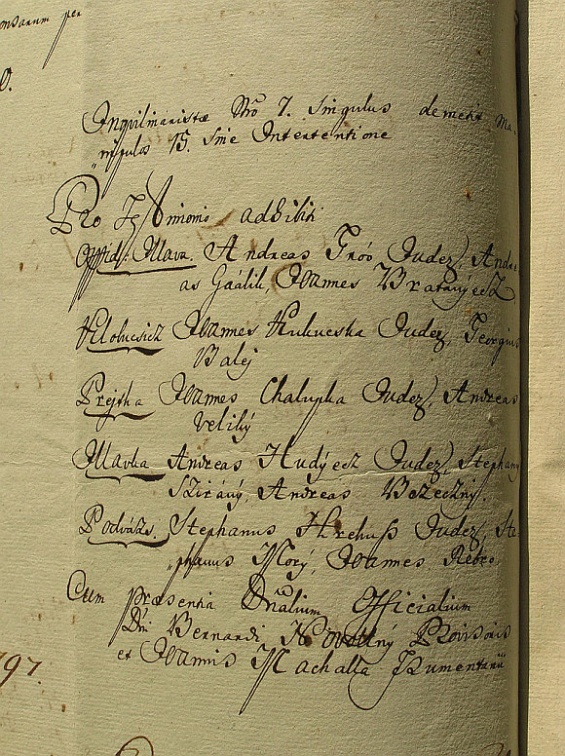 onsarum per
0.
Inquilinaristæ Nro 7. singulus demetit Ma
nipulos 15. sine Intertentione
Pro Testimonio adhibiti
Oppid: Illava. Andreas Froó Judex, Andre
as Gaálik, Joannes Bratnýecz
Klobusicz Joannes Kukucska Judex, Georgius
Balej
Prejtha Joannes Chalupka Judex, Andreas
Velikÿ
Illavka Andreas Hudÿecz Judex, Stephanus
Sziránÿ, Andreas Bezecznÿ.
Podvázs, Stephanus Hrehuss Judex, Ste
phanus Morÿ, Joannes Rebro
Cum præsentia Dnalium Officialium
Dni Bernardi Provisoris
et Joannis Machalla Frumentarii
797.